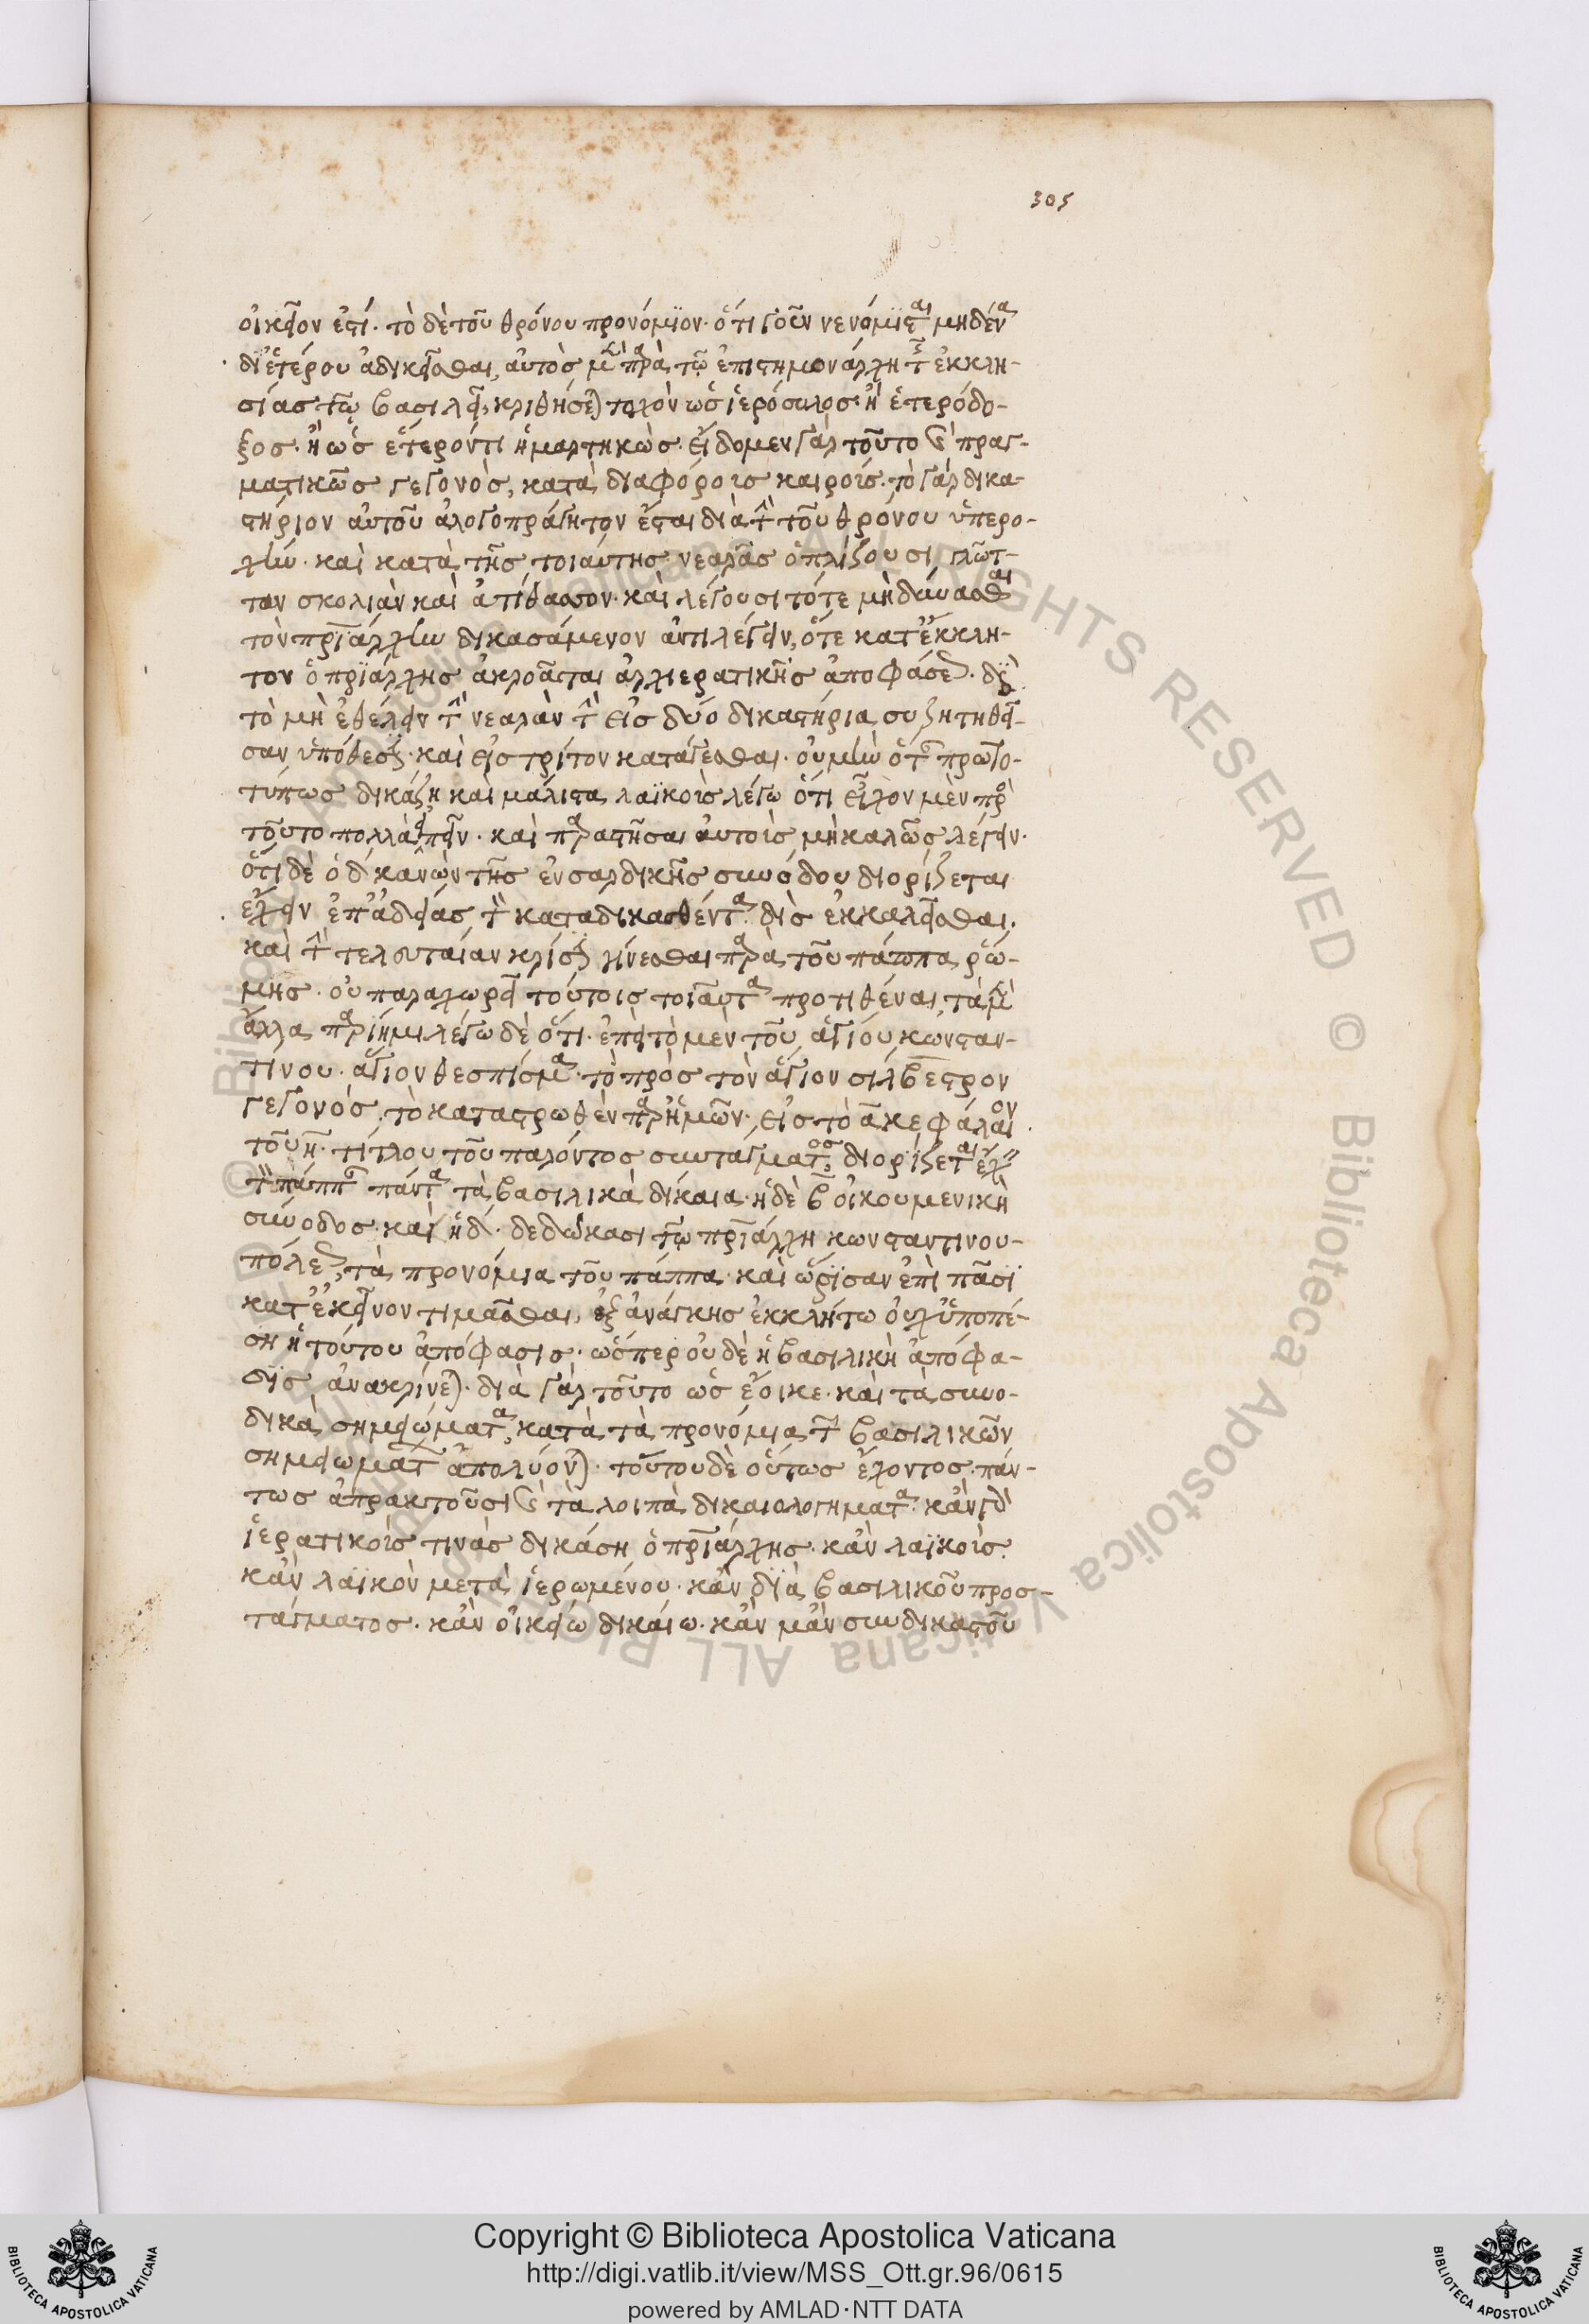 305
οἰκεῖον ἐστί. τὸ δὲ τοῦ θρόνου προνόμϊον. ὅτι γοῦν νενόμϊσται μηδένα
δι' ἑτέρου ἀδικεῖσθαι, αὐτὸς μὲν παρὰ τῷ ἐπιστημονάρχῃ τῆς ἐκκλη-
σίας τῷ βασιλεῖ, κριθήσεται τυχὸν ὡς ἱερόσυλος ἢ ἑτερόδο-
ξος. ἢ ὡς ἕτερόν τι ἡμαρτηκὼς. εἴδομεν γὰρ τοῦτο καὶ πραγ-
ματικῶς γεγονὸς, κατὰ διαφόροις καιροῖς. τὸ γὰρ δικα-
στήριον αὐτοῦ ἀλογοπράγητον ἔσται διὰ τὴν τοῦ θρόνου ὑπερο-
χὴν. καὶ κατὰ τῆς τοιαύτης νεαρᾶς ὁπλίζουσι γλῶτ-
ταν σκολιὰν καὶ ἀτίθασσον. καὶ λέγουσι τότε μὴ δύνασθαι
τὸν πριάρχην δικασάμενον ἀντιλέγειν, ὅτε κατ' ἔκκλη-
τον ὁ πριάρχης ἀκροᾶται ἀρχιερατικῆς ἀποφάσεως. διὰ
τὸ μὴ ἐθέλειν τὴν νεαρὰν τὴν εἰς δύο δικαστήρια συζητηθεῖ-
σαν ὑπόθεσιν. καὶ εἰς τρίτον κατάγεσθαι. οὐ μὴν ὅταν πρωτο-
τύπως δικάζῃ καὶ μάλιστα λαϊκοῖς λέγω ὅτι εἶχον μὲν πρὸς
τοῦτο πολλὰ εἰπεῖν. καὶ παραστῆσαι αὐτοῖς μὴ καλῶς λέγειν.
ὅτι δὲ ὁ δ κανὼν τῆς ἐν σαρδικῆς συνόδου διορίζεται
ἔχειν ἐπ' ἀδείας τὸν καταδικασθέντα δὶς ἐκκαλεῖσθαι.
καὶ τὴν τελευταίαν κρίσιν γίνεσθαι παρὰ τοῦ πάππα ῥώ-
μης. οὐ παραχωρεῖ τούτοις τοιαῦτα προτιθέναι, τὰ μὲν
ἄλλα παρίημι λέγω δὲ ὅτι. ἐπεὶ τὸ μὲν τοῦ ἁγίου κωνσταν-
τίνου. ἅγιον θεσπίσμα. τὸ πρὸς τὸν ἅγιον σίλβεστρον
γεγονὸς, τὸ καταστρωθὲν παρ' ἡμῶν. εἰς τὸ α κεφάλαιον
τοῦ η. τίτλου τοῦ παρόντος συντάγματος, διορίζεται ἔχειν
τὸν πάππαν πάντα τὰ βασιλικὰ δίκαια. ἡ δὲ β οἰκουμενικὴ
σύνοδος. καὶ ἡ δ. δεδώκασι τῷ πριάρχῃ κωνσταντινου-
πόλεως, τὰ προνόμια τοῦ πάππα. καὶ ὥρϊσαν ἐπὶ πᾶσϊ
κατ' ἐκεῖνον τιμᾶσθαι, ἐξ ἀνάγκης ἐκκλήτω οὐχ ὑποπέ-
ση ἡ τούτου ἀπόφασις. ὥσπερ οὐδὲ ἡ βασιλικὴ ἀπόφα-
σϊς ἀνακρίνεται. διὰ γὰρ τοῦτο ὡς ἔοικε. καὶ τὰ συνο-
δικὰ σημειώματα, κατὰ τὰ προνόμια τῶν βασιλικῶν
σημειωμάτων ἀπολύονται. τούτου δὲ οὕτως ἔχοντος. πάν-
τως ἀπρακτοῦσι καὶ τὰ λοιπὰ δικαιολογήματα. κἂν γὰρ
ἱερατικοῖς τινὰς δικάσῃ ὁ πριάρχης. κἂν λαϊκοῖς.
κἂν λαϊκὸν μετὰ ἱερωμένου. κἂν διὰ βασιλικοῦ προσ-
τάγματος. κἂν οἰκείω δικαίω. κἂν μὰν συνδικαστοῦ
Copyright © Biblioteca Apostolica Vaticana
http://digi.vatlib.it/view/MSS_Ott.gr.96/0615
powered by AMLAD·NTT DATA